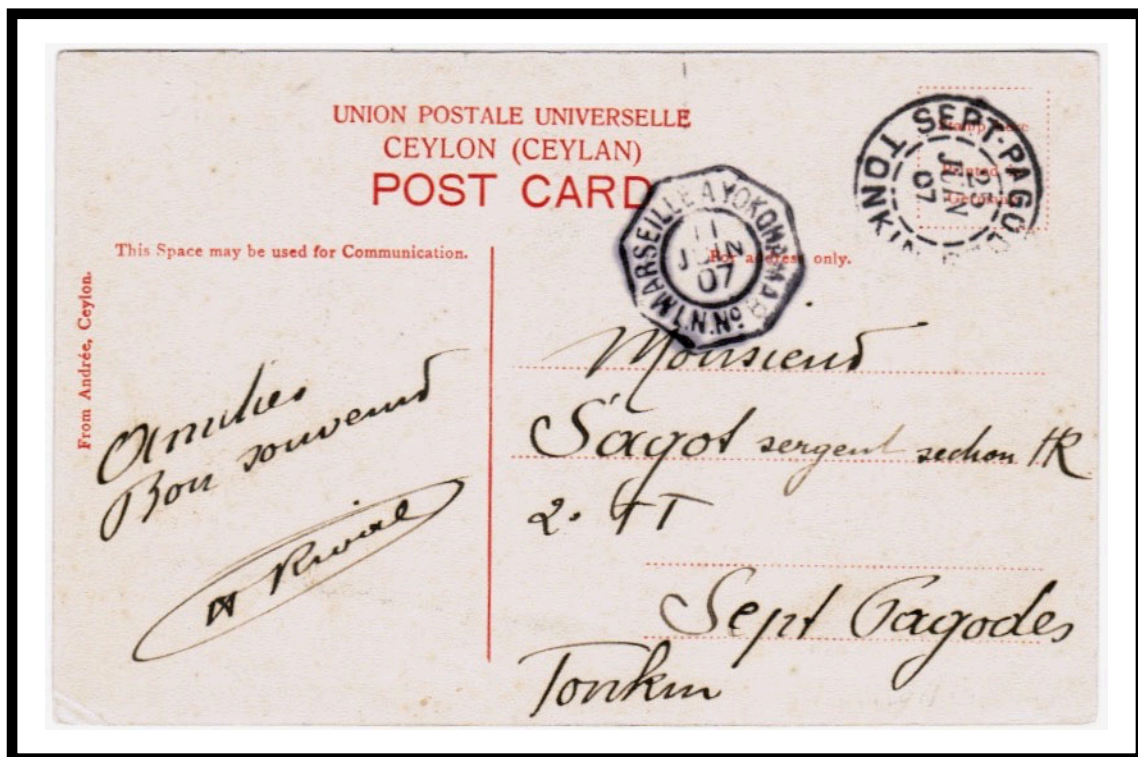 UNION POSTALE UNIVERSELLE
CEYLON (CEYLAN)
POST CARD
Stamp here
Printed in
Germany
TONKIN SEPT-PAGOD
25
JUIN
07
MARSEILLE A YOKOHAMA
L.N.Nº
11
JUIN
07
This Space may be used for Communication.
For address only.
From Andrée, Ceylon.
Amitiés
Bon souvenir
Monsieur
Sagot sergent section HR
2. TT
Sept Pagodes
Tonkin